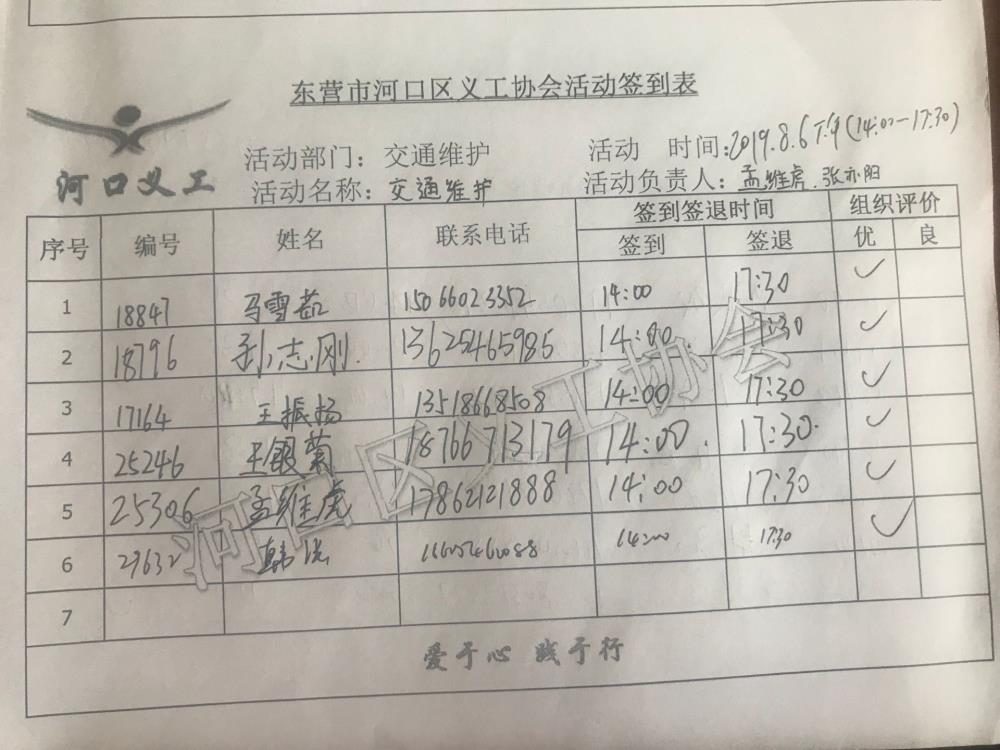 东营市河口区义工协会活动签到表
河口义工
活动部门：交通维护 活动 时间：2019.8.6下午(14:00-17:30)
活动名称：交通维护 活动负责人：孟维虎.张亦阳
序号 编号 姓名 联系电话 签到签退时间 组织评价
签到 签退 优 良
1 18847 马雪茹 15066023352 14:00 17:30 ✓
2 18796 孙志刚. 13625465985 14:00. 17:30 ✓
3 17164 王振扬 13518668508 14:00 17:30 ✓
4 25246 王银菊 18766713179 14:00. 17:30. ✓
5 25306 孟维虎 17862121888 14:00 17:30 ✓
6 韩 14:00 17:30 ✓
7
爱于心 践于行
河口区义工协会